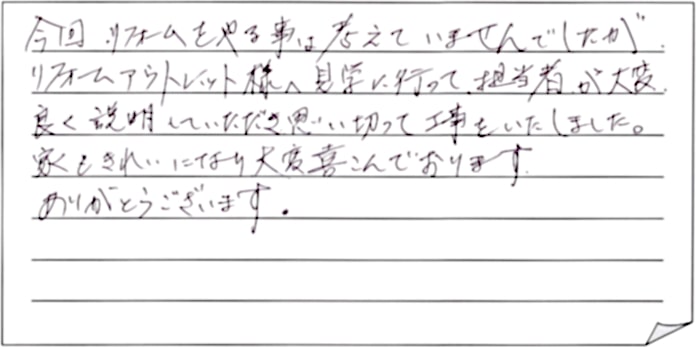 今回、リフォームをやる事は考えていませんでしたが、
リフォームアウトレット様へ見学に行って、担当者が大変
良く説明していただき思い切って工事をいたしました。
家もきれいになり大変喜こんでおります。
ありがとうございます。